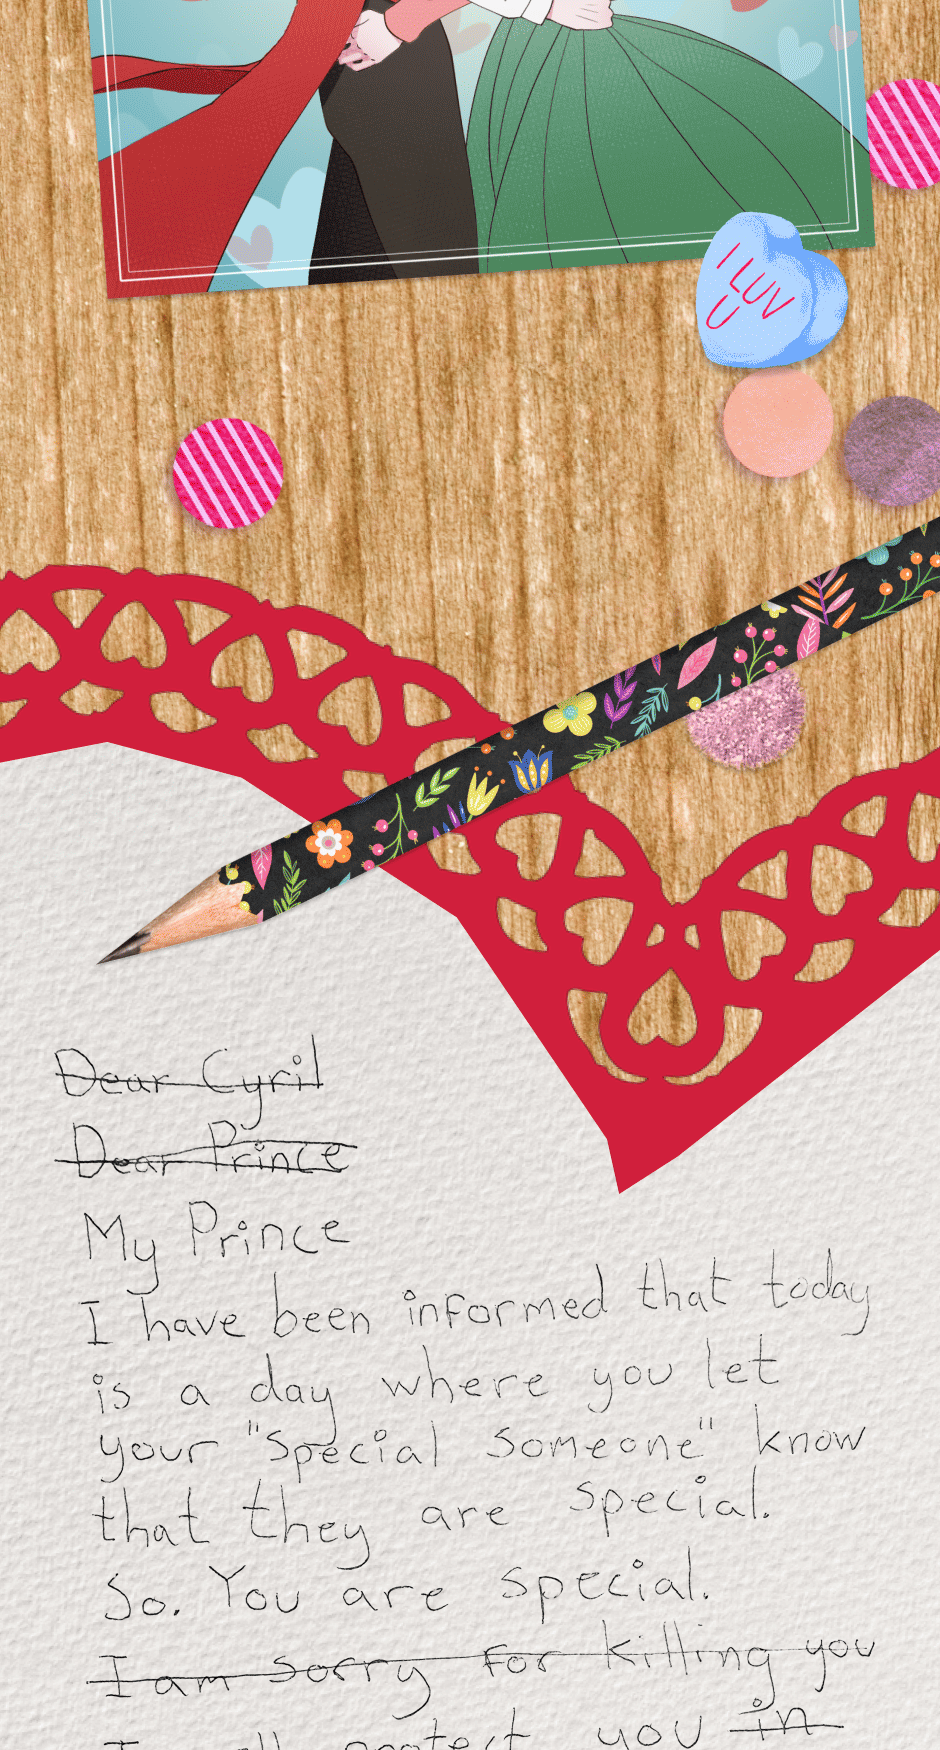 I LUV
U
Dear Cyril
Dear Prince
My Prince
I have been informed that today
is a day where you let
your "special someone" know
that they are special.
So. You are special.
I am sorry for killing you
I protect you in